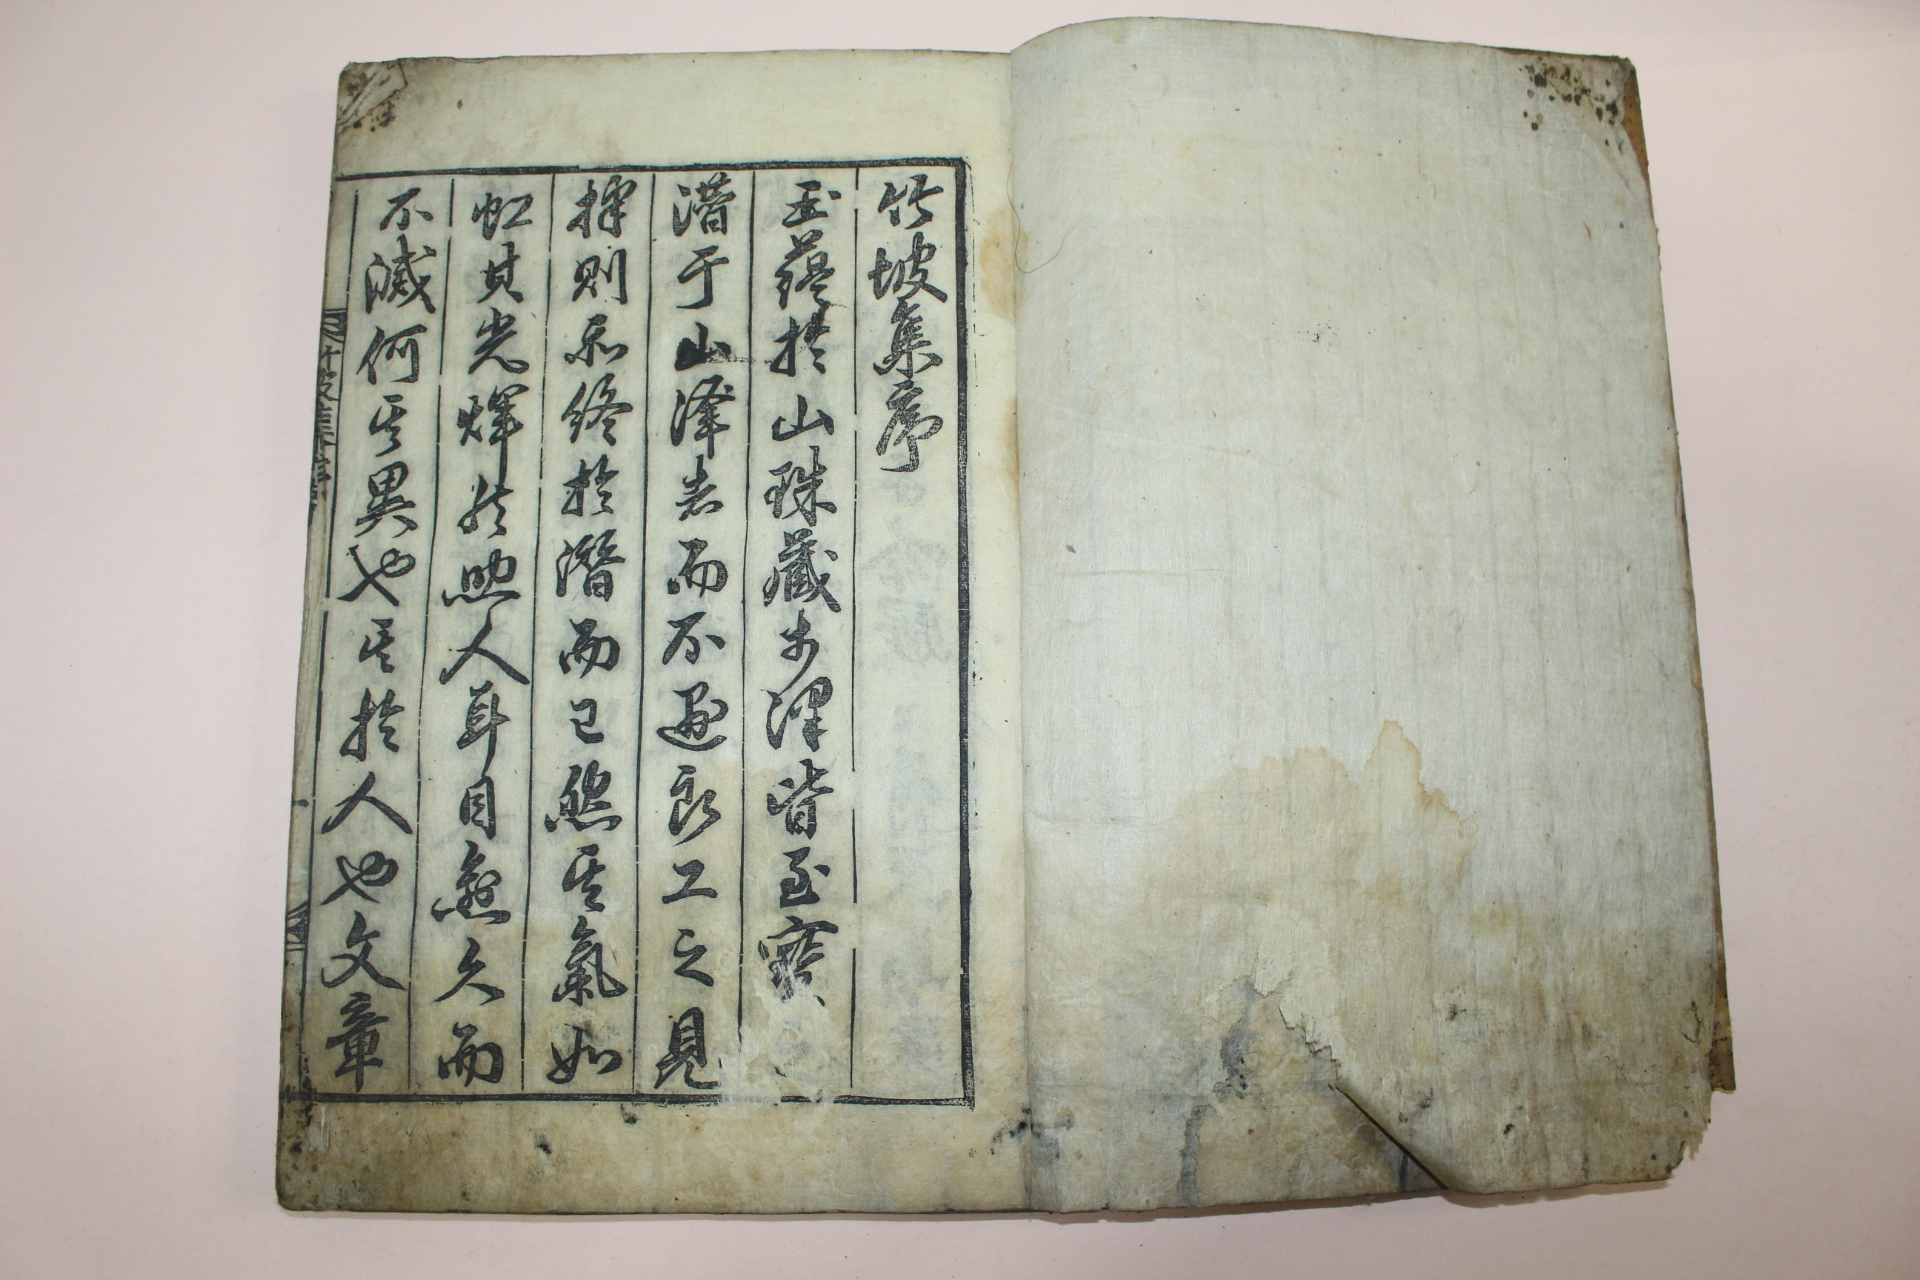 竹坡集序
玉蘊於山珠藏於澤皆至寶
潛于山澤者而不遇良工之見
擇則亦終於潛而已然其氣如
虹其光輝能照人耳目愈久而
不滅何其異也其於人也文章
竹坡集序